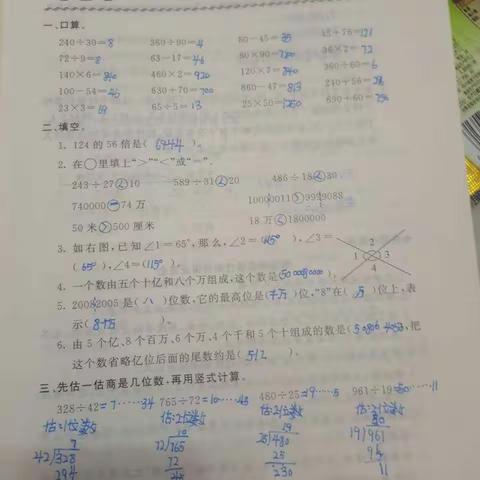 一、口算。
240÷30=8 360÷90=4 80-45=35 45+76=121
72÷9=8 63-17=46 80×90=7200 36×2=72
140×6=840 460×2=920 120×7=840 360÷60=6
100-54=46 630+70=700 860-47=813 240+56=
23×3=69 65÷5=13 25×50=1250 690+60=750
二、填空。
1. 124的56倍是( 6944 )。
2. 在○里填上“>”“<”或“=”。
243÷27<10 589÷31<20 486÷18<30
740000=74万 10000011>9999088
50米>500厘米 18万<1800000
3. 如右图,已知∠1=65°,那么,∠2=(115°),∠3=
(65°),∠4=(115°)。
1 2 3 4
4. 一个数由五个十亿和八个万组成,这个数是(5000080000)。
5. 20082005是( 八 )位数,它的最高位是(千万)位,“8”在( 万 )位上,表
示( 8个万 )。
6. 由5个亿、8个百万、6个万、4个千和5个十组成的数是( ),把
这个数省略亿位后面的尾数约是( )。
三、先估一估商是几位数,再用竖式计算。
328÷42=7……34 765÷72=10……45 480÷25=19……5 961÷19=50……11
估:1位数 估:2位数 估:2位数 估:2位数
7 10 19 50
42 328 72 765 25 480 19 961
294 72 25 95
45 230 11